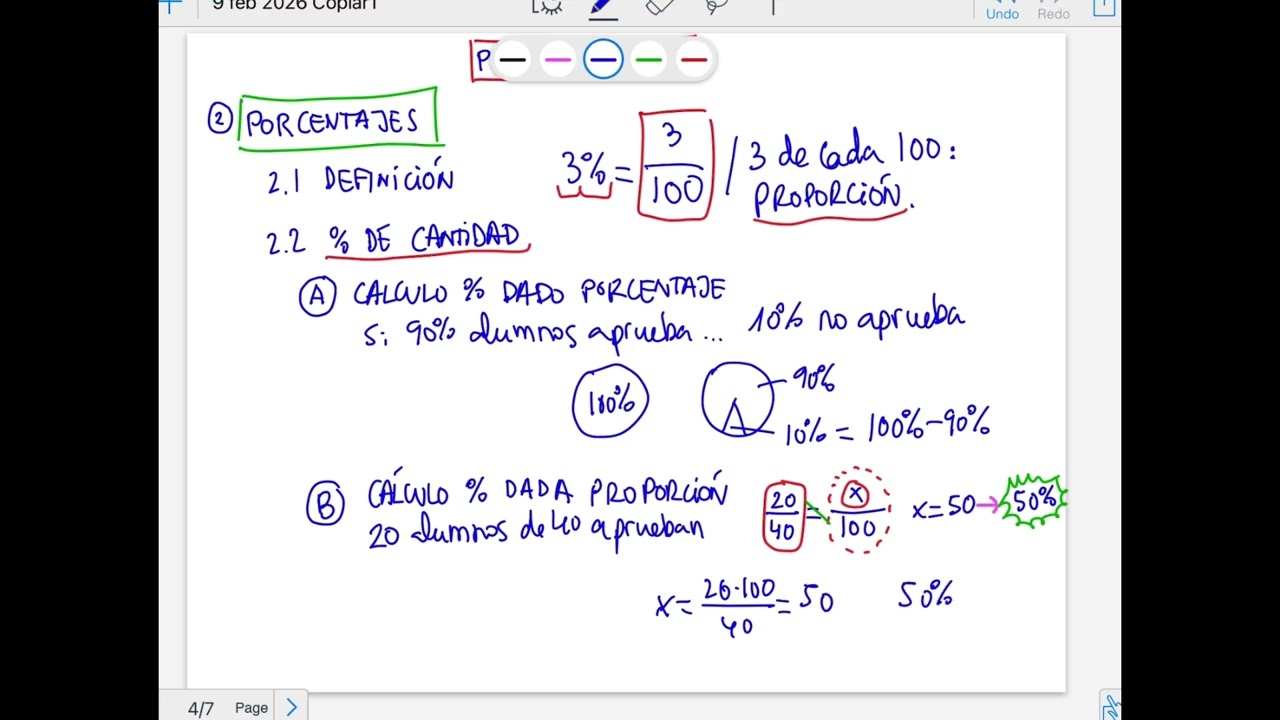 9 feb 2026 Copiar1
Undo Redo
P
② PORCENTAJES
2.1 DEFINICIÓN
3% = 3/100 / 3 de cada 100:
PROPORCIÓN.
2.2 % DE CANTIDAD
Ⓐ CALCULO % DADO PORCENTAJE
Si 90% alumnos aprueba... 10% no aprueba
100%
90%
10% = 100% - 90%
Ⓑ CÁLCULO % DADA PROPORCIÓN
20 alumnos de 40 aprueban
20/40 = x/100 x = 50 → 50%
x = 20·100/40 = 50 50%
4/7 Page